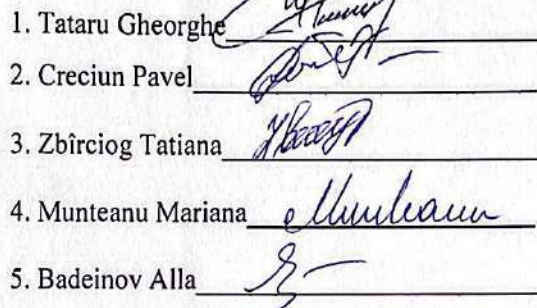 1. Tataru Gheorghe
2. Creciun Pavel
3. Zbîrciog Tatiana
4. Munteanu Mariana Munteanu
5. Badeinov Alla